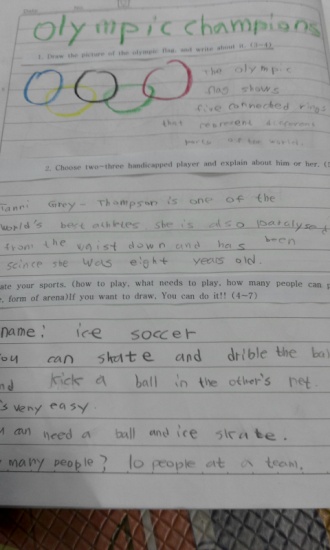 Olympic champions
1. Draw the picture of the olympic flag, and write about it. (3~4)
the olympic
flag shows
five connected rings
that represent different
parts of the world.
2. Choose two~three handicapped player and explain about him or her.
Grey - Thompson is one of the
world's best athletes she is also paralysed
from the waist down and has been
scince she was eight years old.
ate your sports. (how to play, what needs to play, how many people can
, form of arena)If you want to draw, You can do it!! (4~7)
name: ice soccer
ou can skate and drible the ball
nd kick a ball in the other's net.
's very easy.
u can need a ball and ice skate.
many people? 10 people at a team.